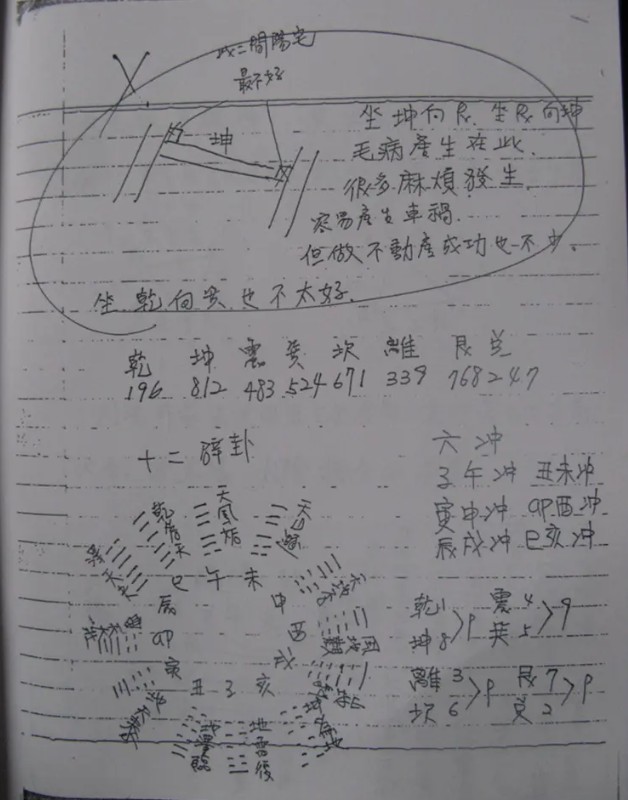 此二間陽宅
最不好
坤
坐坤向艮.坐艮向坤
毛病產生在此.
很多麻煩發生.
容易產生車禍.
但做不動產成功也不少。
坐乾向巽也不太好.
乾 坤 震 巽 坎 離 艮 兌
196 812 483 524 671 339 768 247
十二辟卦
六冲
子午冲 丑未冲
寅申冲 卯酉冲
辰戌冲 巳亥冲
乾為天
天風姤
天山遯
巳 午 未
辰
申
卯
酉
寅
戌
丑 子 亥
地澤臨
地雷復
乾1
坤8 >9
震4
巽5 >9
離3
坎6 >9
艮7
兌2 >9